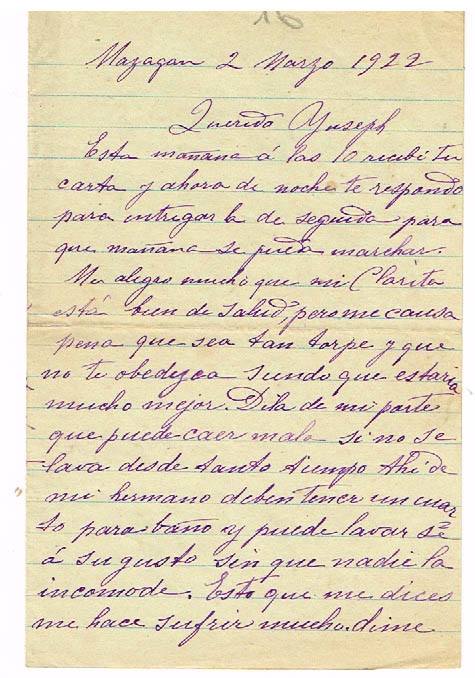 16
Mazagan 2 Marzo 1922
Querido Yuseph
Esta mañana á las 10 recibi tu
carta y ahora de noche te respondo
para entregarla de seguida para
que mañana se pueda marchar.
Me alegro mucho que mi Clarita
está bien de salud, pero me causa
pena que sea tan torpe y que
no te obedezca siendo que estaria
mucho mejor. Dila de mi parte
que puede caer mala si no se
lava desde tanto tiempo Ahi de
mi hermano deben tener un cuar
to para baño y puede lavar se
á su gusto sin que nadie la
incomode. Esto que me dices
me hace sufrir mucho. dime